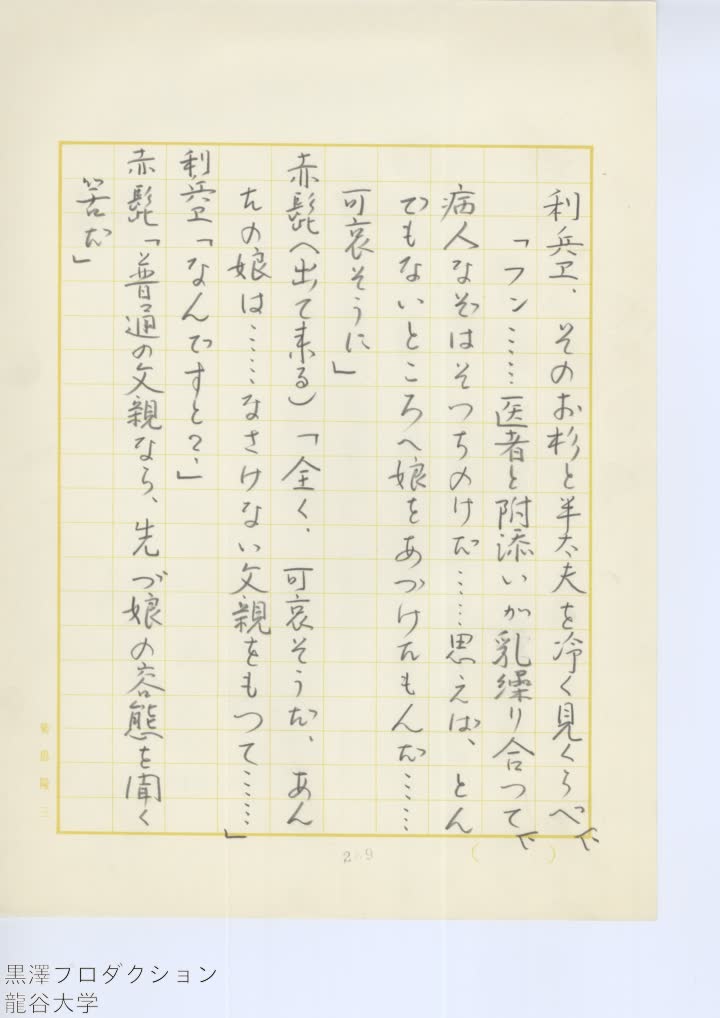 利兵卫、そのお杉と半太夫を冷く見くらべて
「フン……医者と附添いが乳繰り合つて
病人なぞはそつちのけだ……思えば、とん
でもないところへ娘をあづけたもんだ……
可哀そうに」
赤髭(出て来る)「全く、可哀そうだ、あん
たの娘は……なさけない父親をもつて……」
利兵卫「なんですと?」
赤髭「普通の父親なら、先づ娘の容態を聞く
筈だ」
菊島隆三
269
黒澤プロダクション
龍谷大学